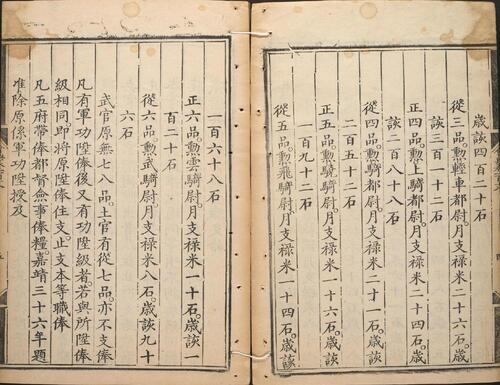 歲該四百二十石
從三品。勲輕車都尉。月支祿米二十六石。歲
該三百一十二石
正四品。勲上騎都尉。月支祿米二十四石。歲
該二百八十八石
從四品。勲騎都尉。月支祿米二十一石。歲該
二百五十二石
正五品。勲驍騎尉。月支祿米一十六石。歲該
一百九十二石
從五品。勲飛騎尉。月支祿米一十四石。歲該
一百六十八石
正六品。勲雲騎尉。月支祿米一十石。歲該一
百二十石
從六品。勲武騎尉。月支祿米八石。歲該九十
六石
武官原無七八品。土官有從七品。亦不支俸
凡有軍功陞俸後又有功陞級者。若與所陞俸
級相同即將原陞俸住支止支本等職俸
凡五府帶俸都督僉事俸糧。嘉靖三十六年題
准除原係軍功陞授及